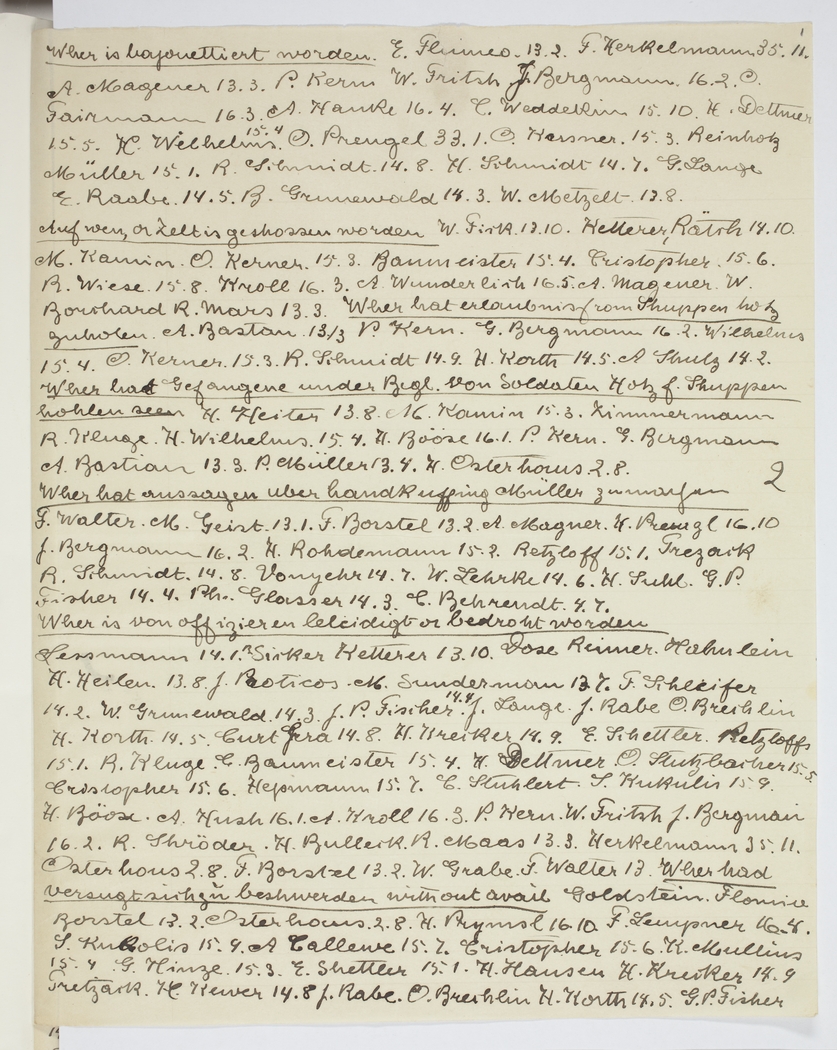 Wher is bajonettiert worden. E. Flumeo. 13.2. F. Herkelmann 35. 11.
A. Magener 13.3. P. Kern W. Fritsh J. Bergmann. 16.2. O.
Fairmann 16.3. A. Hanke 16.4. C. Weddekin 15.10. H. Dettmer
15.5. H. Wilhelms 15.4. O. Prengel 33.1. O. Kersner. 15.3. Reinholz
Müller 15.1. R. Schmidt. 14.8. H. Schmidt 14.7. G. Lange
E. Raabe. 14.5. B. Grunewald 14.3. W. Metzelt. 13.8.
Auf wen, or Zelt is geshossen worden W. Fisk. 13.10. Ketterer, Rätsh 14.10.
M. Kamin. O. Kerner. 15.3. Baumeister 15.4. Cristopher. 15.6.
B. Wiese. 15.8. Kroll 16.3. A. Wunderlich 16.5. A. Magener. W.
Borchard R. Mars 13.3. Wher hat erlaubnis from Shuppen holz
zuholen. A. Bastan. 13/3 P. Kern. G. Bergmann 16.2. Wilhelms
15.4. O. Kerner. 15.3. R. Schmidt 14.9. H. Korth 14.5. A Shulz 14.2.
Wher had Gefangene under Begl. von Soldaten Holz f. Shuppen
hohlen seen H. Heiter 13.8. M. Kamin 15.3. Zimmermann
R. Kluge. H. Wilhelms. 15.4. H. Bööse 16.1. P. Kern. G. Bergmann
A. Bastian 13.3. P. Müller 13.4. H. Osterhous. 2.8. 2
Wher hat aussagen uber handkuffing Müller zu machen
F. Walter. M. Geist. 13.1. F. Borstel 13.2. A. Magner. H. Prengl 16.10
J. Bergmann 16.2. H. Rohdemann 15.2. Retzloff 15.1. Trezack
R. Schmidt. 14.8. Vonyehr 14.7. W. Lehrke 14.6. H. Suhl. G.P.
Fisher 14.4. Ph. Glasser 14.3. C. Behrendt. 4.7.
Wher is von offizieren beleidigt or bedroht worden
Lessmann 14.1. Sicker Ketterer 13.10. Dose Reimer. Hahnlein
H. Heilen. 13.8. J. Boticos. M. Sunderman 13.7. F. Schleifer
14.2. W. Grunewald. 14.3. J. P. Fischer 14.4. J. Lange. J. Rabe O. Breihlin
H. Korth. 14.5. Curt Jera 14.8. H. Kreiker 14.9. E. Schettler. Retzloffs
15.1. R. Kluge. C. Baumeister 15.4. H. Dettmer. O. Stutzbacher 15.5.
Cristopher 15.6. Hepmann 15.7. C. Stuhlert. S. Kukulis 15.9.
H. Böösc. A. Hush 16.1. A. Kroll 16.3. P. Kern. W. Fritsh J. Bergman
16.2. R. Shröder. H. Bulleck. R. Maas 13.3. Herkelmann 35.11.
Osterhous 2.8. F. Borstel 13.2. W. Grabe. F. Walter 13. Wher had
versugt sich zu beshwerden without avail Goldstein. Flomio
Borstel 13.2. Osterhous. 2.8. H. Prymsl 16.10 F. Lempner 16.4.
S. Kukolis 15.9. A Callewe 15.7. Cristopher 15.6. K. Mullins
15.4 G. Hinze. 15.3. E. Shettler 15.1. H. Hansen H. Kreiker 14.9
Tretzack. H. Kewer 14.8 J. Rabe. O. Breihlin H. Korth 14.5. G.P. Fisher